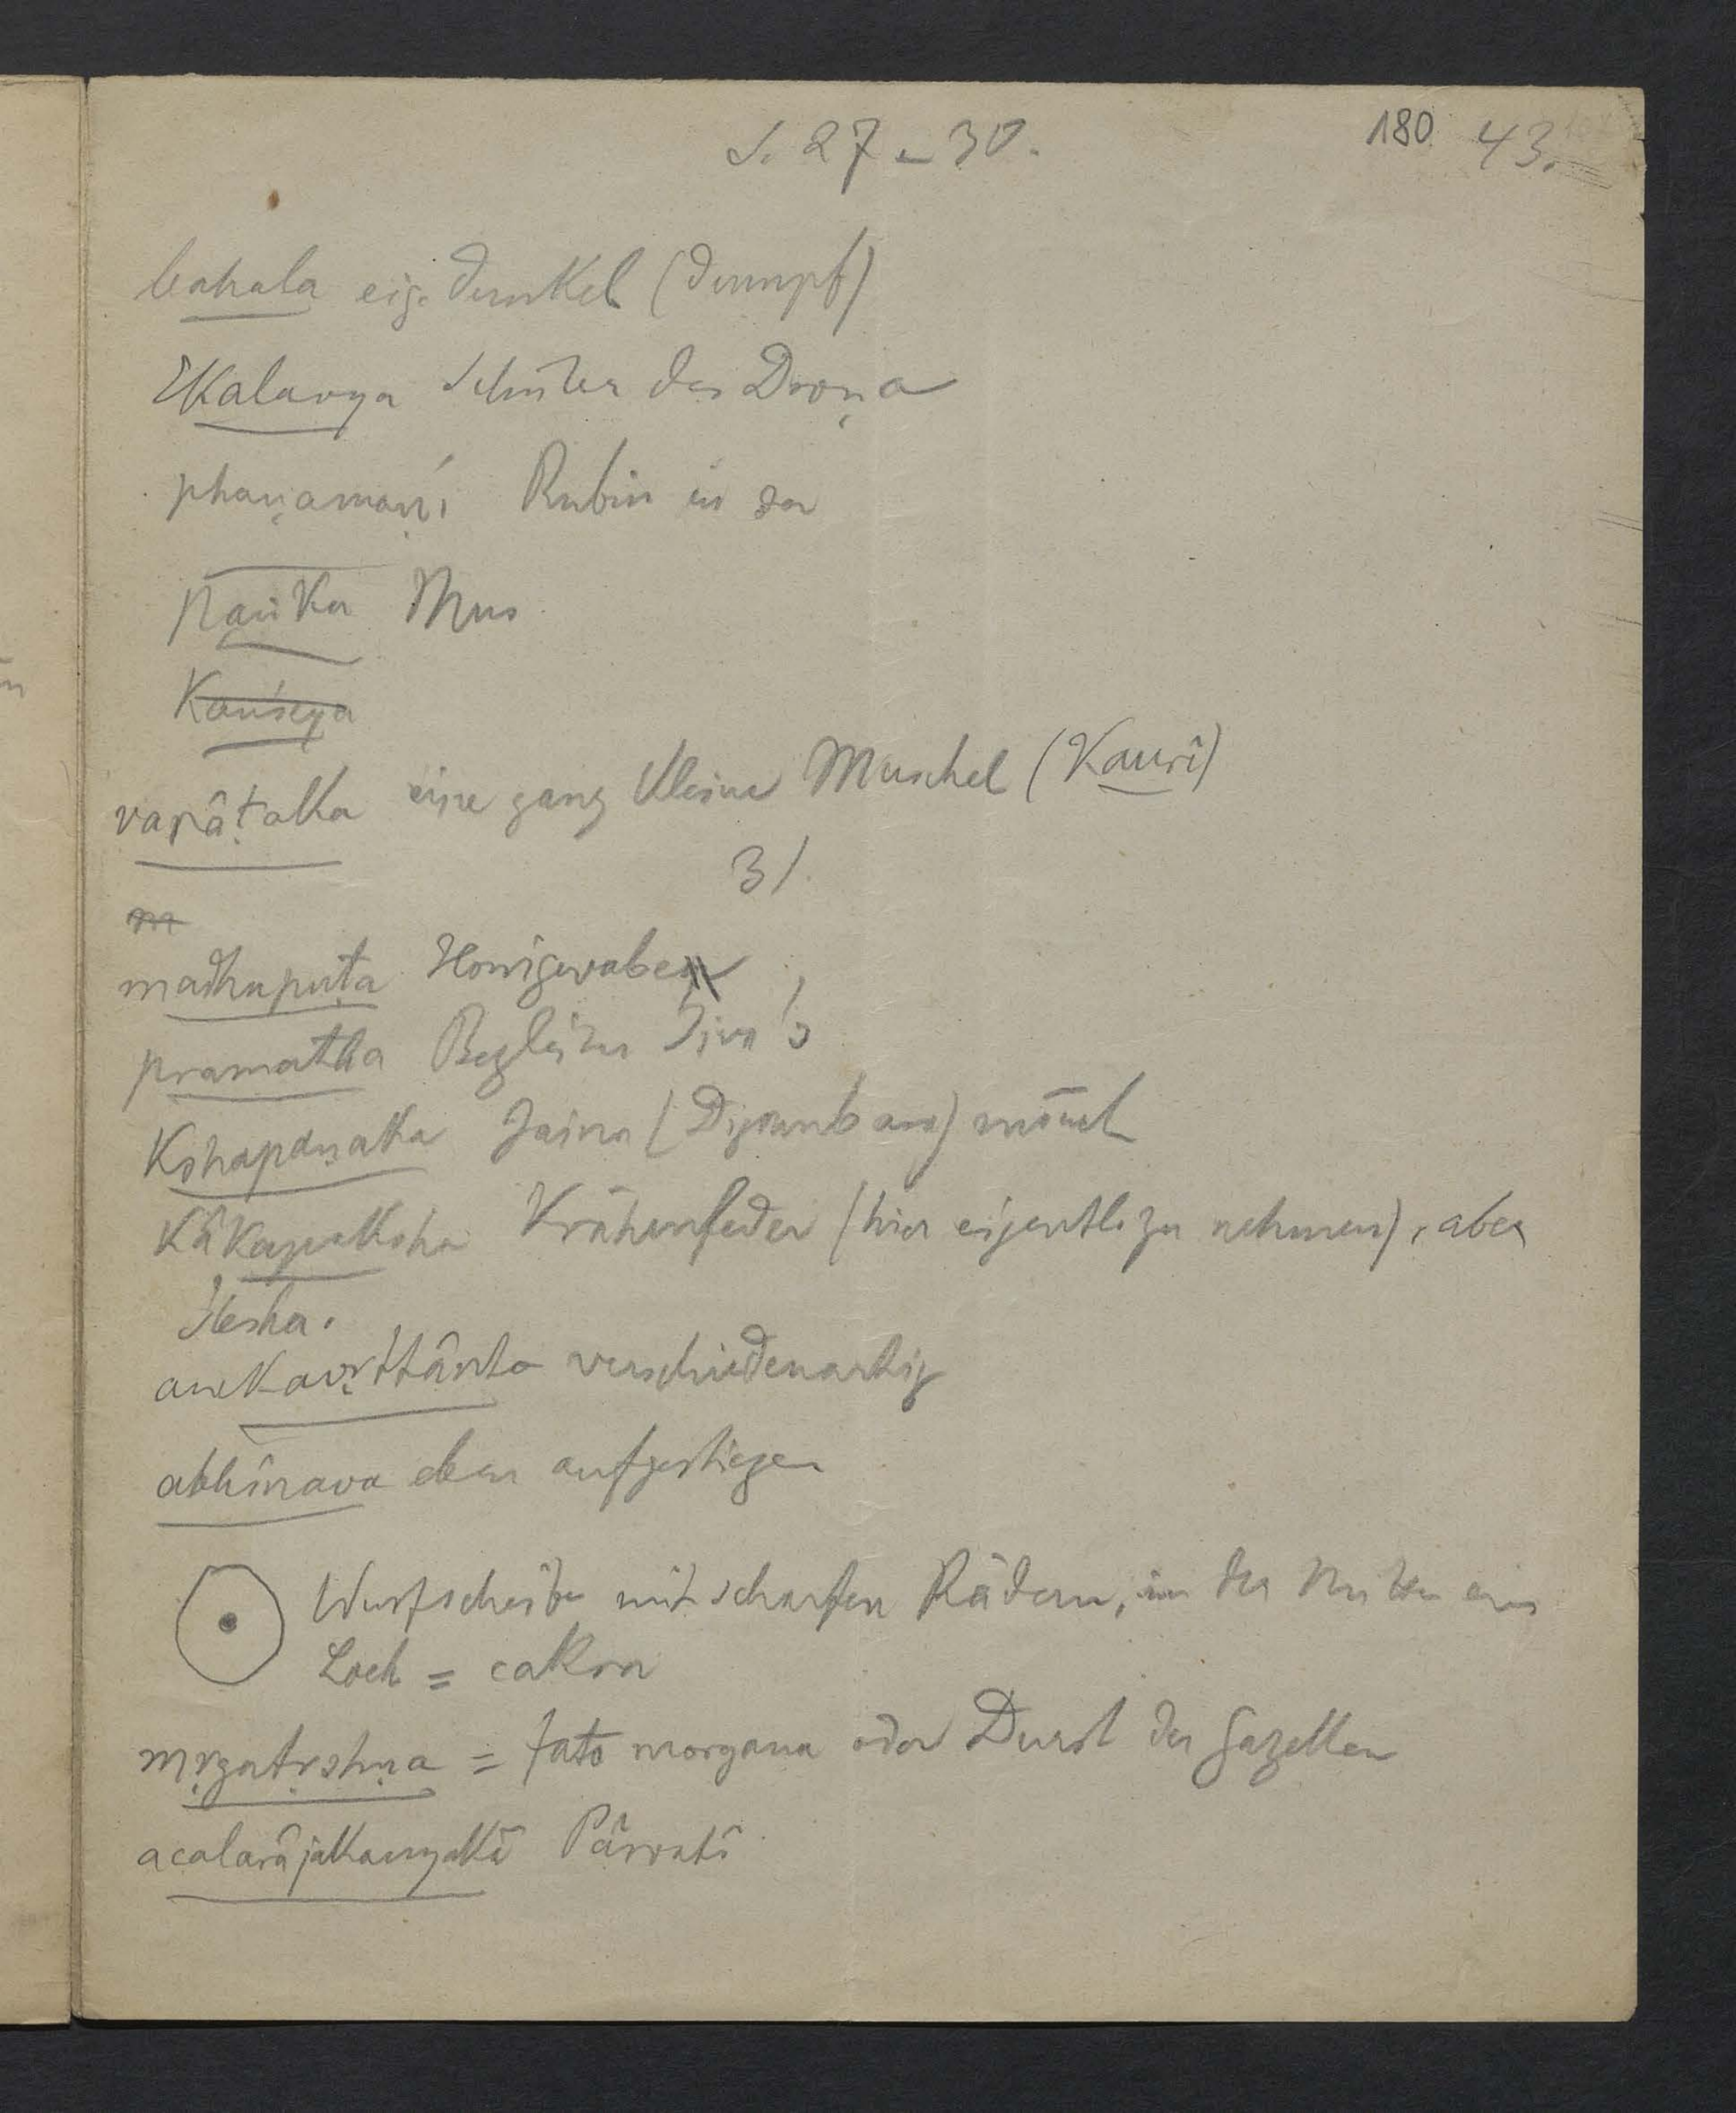 S. 27-30.
180. 43.
bahala eig. dunkel (dumpf)
Ekalavya Schüler des Droṇa
phaṇamaṇi Rubin in der
paṅka Mus
Kauśeya
varâṭaka eine ganz kleine Muschel (Kaurî)
31.
m
madhupuṭa Honigwaben
pramatha Begleiter Śiva's
Kshapaṇaka Jaina (Digambara) mönch
Kâkapaksha Krähenfeder (hier eigentl. zu nehmen), aber
ślesha.
anekavṛttânta verschiedenartig
abhinava eben aufgestiegen
Wurfscheibe mit scharfen Rädern, in der Mitte ein
Loch = cakra
mṛgatṛshṇa = fata morgana oder Durst der Gazellen
acalarâjakanyakâ Pârvatî